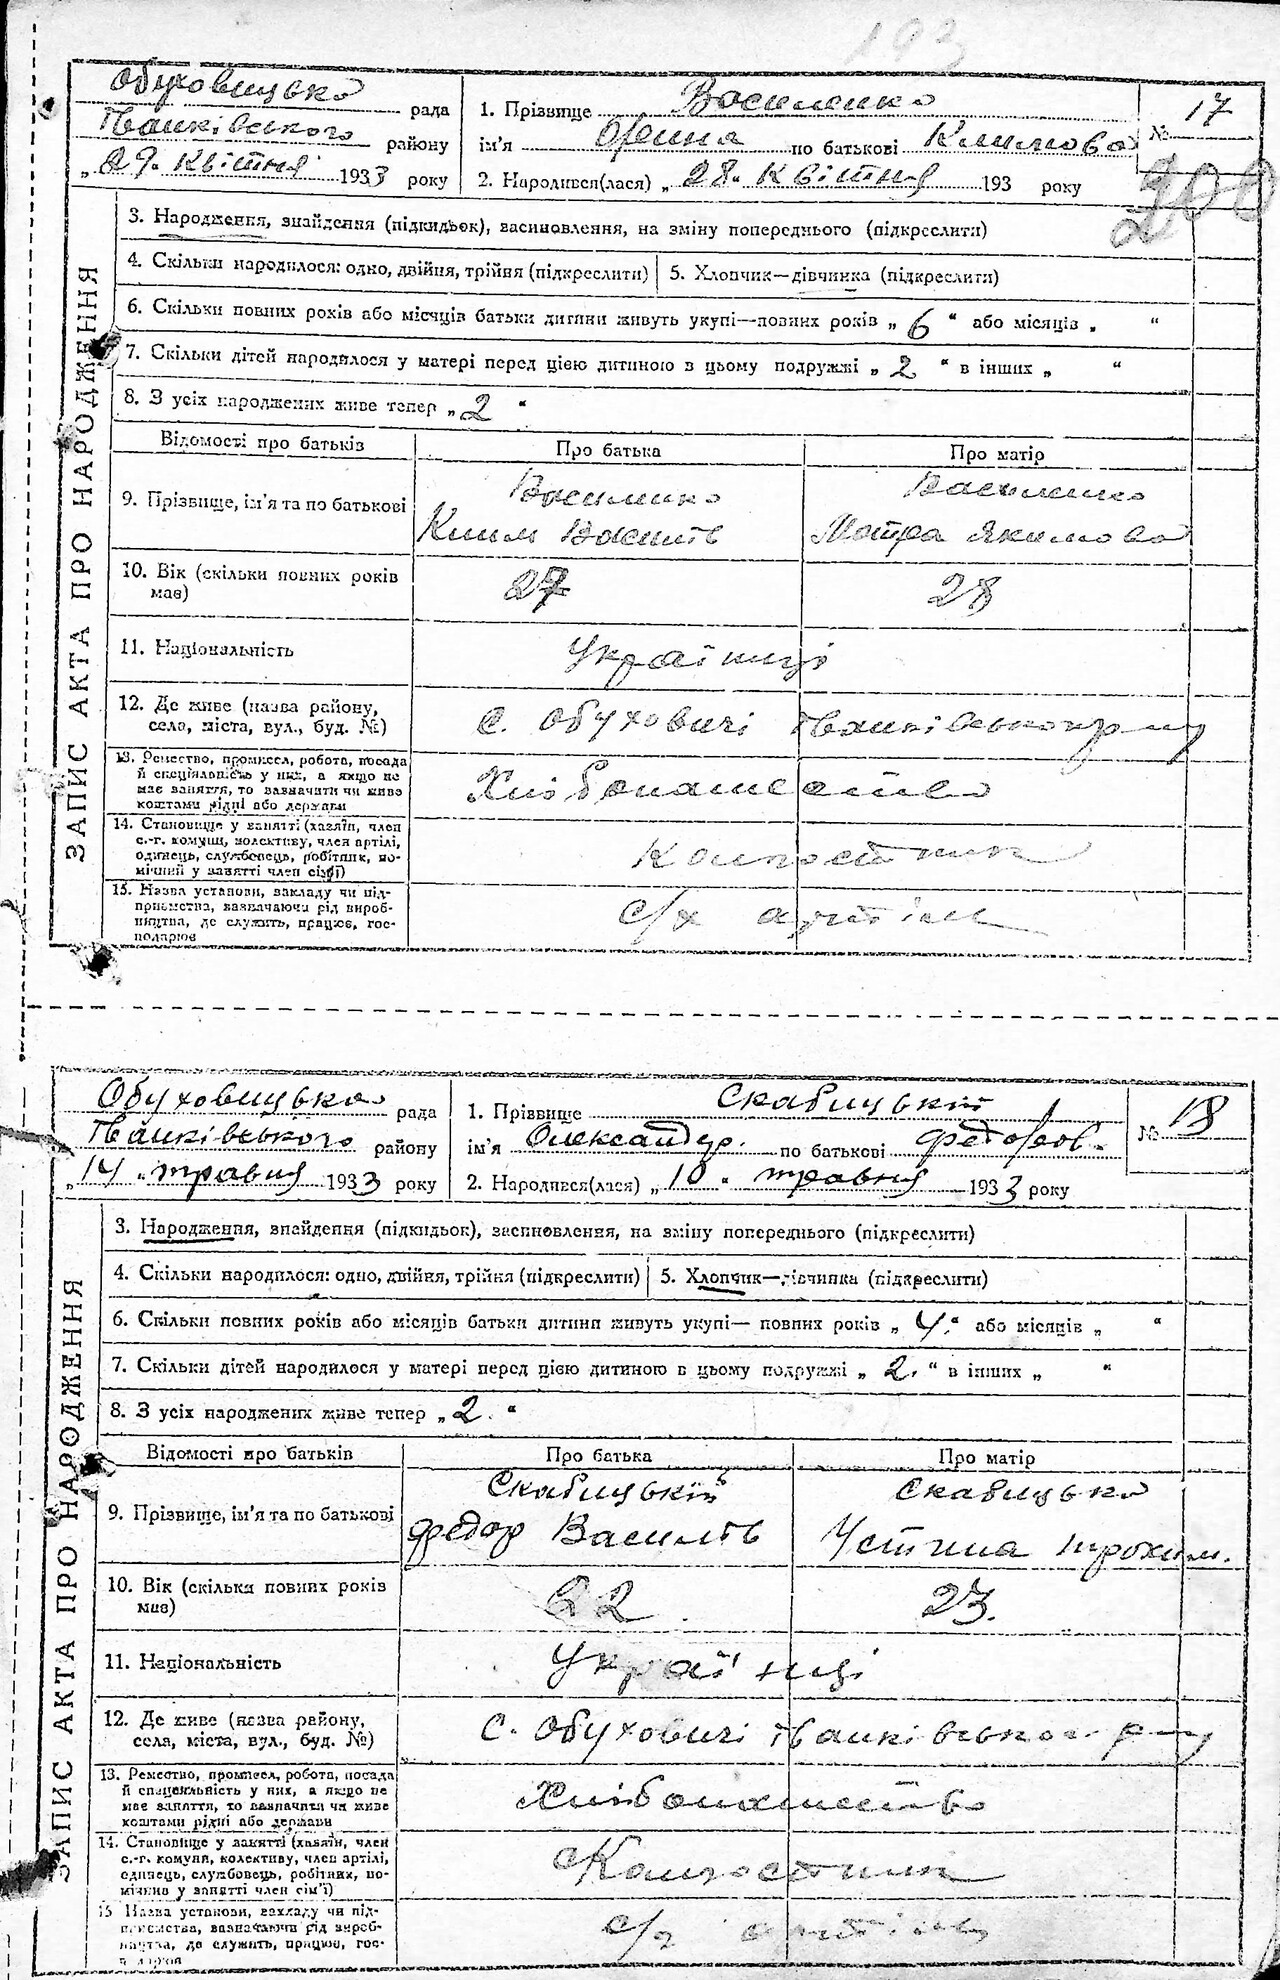 193
Обуховицька рада
Іванківського району
„ 29. Квітня 1933 року
1. Прізвище Василенко
ім'я Орина по батькові Климова
2. Народився(лася) „ 28. Квітня 193 року
№ 17
200
ЗАПИС АКТА ПРО НАРОДЖЕННЯ
3. Народження, знайдення (підкидьок), засиновлення, на зміну попереднього (підкреслити)
4. Скільки народилося: одно, двійня, трійня (підкреслити)
5. Хлопчик—дівчинка (підкреслити)
6. Скільки повних років або місяців батьки дитини живуть укупі—повних років „ 6 “ або місяців „ “
7. Скільки дітей народилося у матері перед цією дитиною в цьому подружжі „ 2 “ в інших „ “
8. З усіх народжених живе тепер „ 2 “
Відомості про батьків Про батька Про матір
9. Прізвище, ім'я та по батькові
Василенко Василенко
Клим Василів Мотра Якимова
10. Вік (скільки повних років має) 27 28
11. Національність Українці
12. Де живе (назва району,
села, міста, вул., буд. №) с. Обуховичі Іванківського р-ну
13. Ремество, промисел, робота, посада
й спеціяльність у них, а якщо не
має заняття, то зазначити чи живе
коштами рідні або держави
Хліборобство
14. Становище у занятті (хазяїн, член
с.-г. комуни, колективу, член артілі,
одинець, службовець, робітник, по-
мічний у занятті член сім'ї)
Колгоспник
15. Назва установи, закладу чи під-
приємства, зазначаючи рід вироб-
ництва, де служить, працює, гос-
подарює
с/х артіль
Обуховицька рада
Іванківського району
„ 14 „ травня 1933 року
1. Прізвище Скабицький
ім'я Олександр. по батькові Федоров.
2. Народився(лася) „ 10 „ травня 1933 року
№ 18
ЗАПИС АКТА ПРО НАРОДЖЕННЯ
3. Народження, знайдення (підкидьок), засиновлення, на зміну попереднього (підкреслити)
4. Скільки народилося: одно, двійня, трійня (підкреслити)
5. Хлопчик—дівчинка (підкреслити)
6. Скільки повних років або місяців батьки дитини живуть укупі— повних років „ 4. “ або місяців „ “
7. Скільки дітей народилося у матері перед цією дитиною в цьому подружжі „ 2. “ в інших „ “
8. З усіх народжених живе тепер „ 2. “
Відомості про батьків Про батька Про матір
9. Прізвище, ім'я та по батькові
Скабицький Скабицька
Федор Василів Устина Трохим.
10. Вік (скільки повних років
має) 22 23.
11. Національність Українці
12. Де живе (назва району,
села, міста, вул., буд. №) с. Обуховичі Іванківського р-ну
13. Ремество, промисел, робота, посада
й спеціяльність у них, а якщо не
має заняття, то зазначити чи живе
коштами рідні або держави
14. Становище у занятті (хазяїн, член
с.-г. комуни, колективу, член артілі,
одинець, службовець, робітник, по-
мічник у занятті член сім'ї)
Колгоспник
15 Назва установи, закладу чи під-
приємства, зазначаючи рід вироб-
ництва, де служить, працює, гос-
подарює
артіль